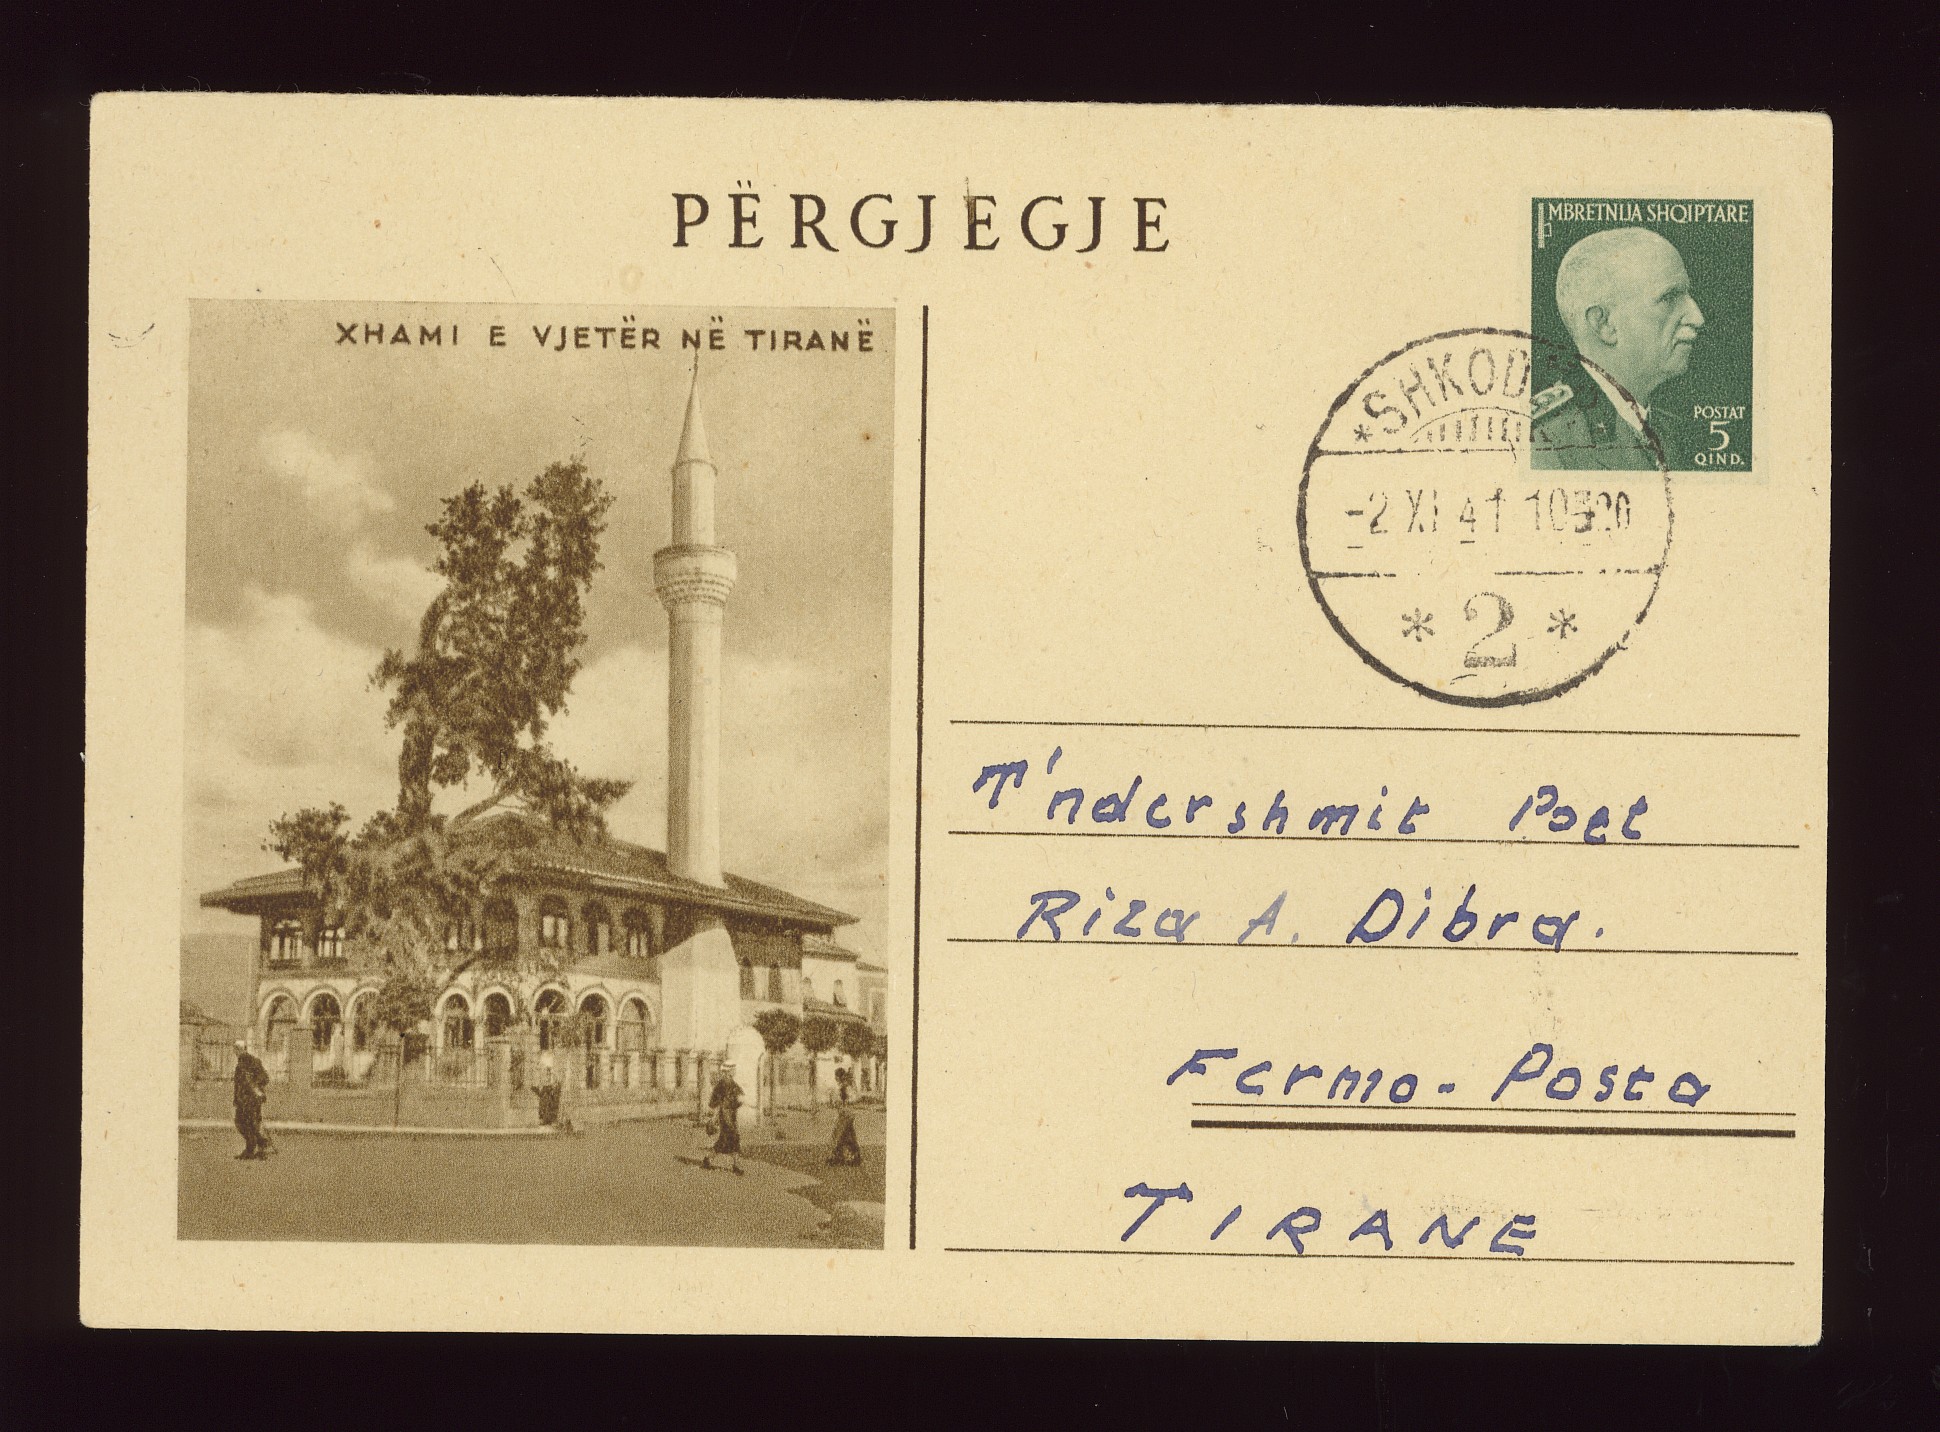 PËRGJEGJE
XHAMI E VJETËR NË TIRANË
MBRETNIJA SHQIPTARE
POSTAT
5
QIND.
*SHKOD
-2 XI 41
* 2 *
T'ndershmit Poet
Riza A. Dibra.
Fermo-Posta
TIRANE